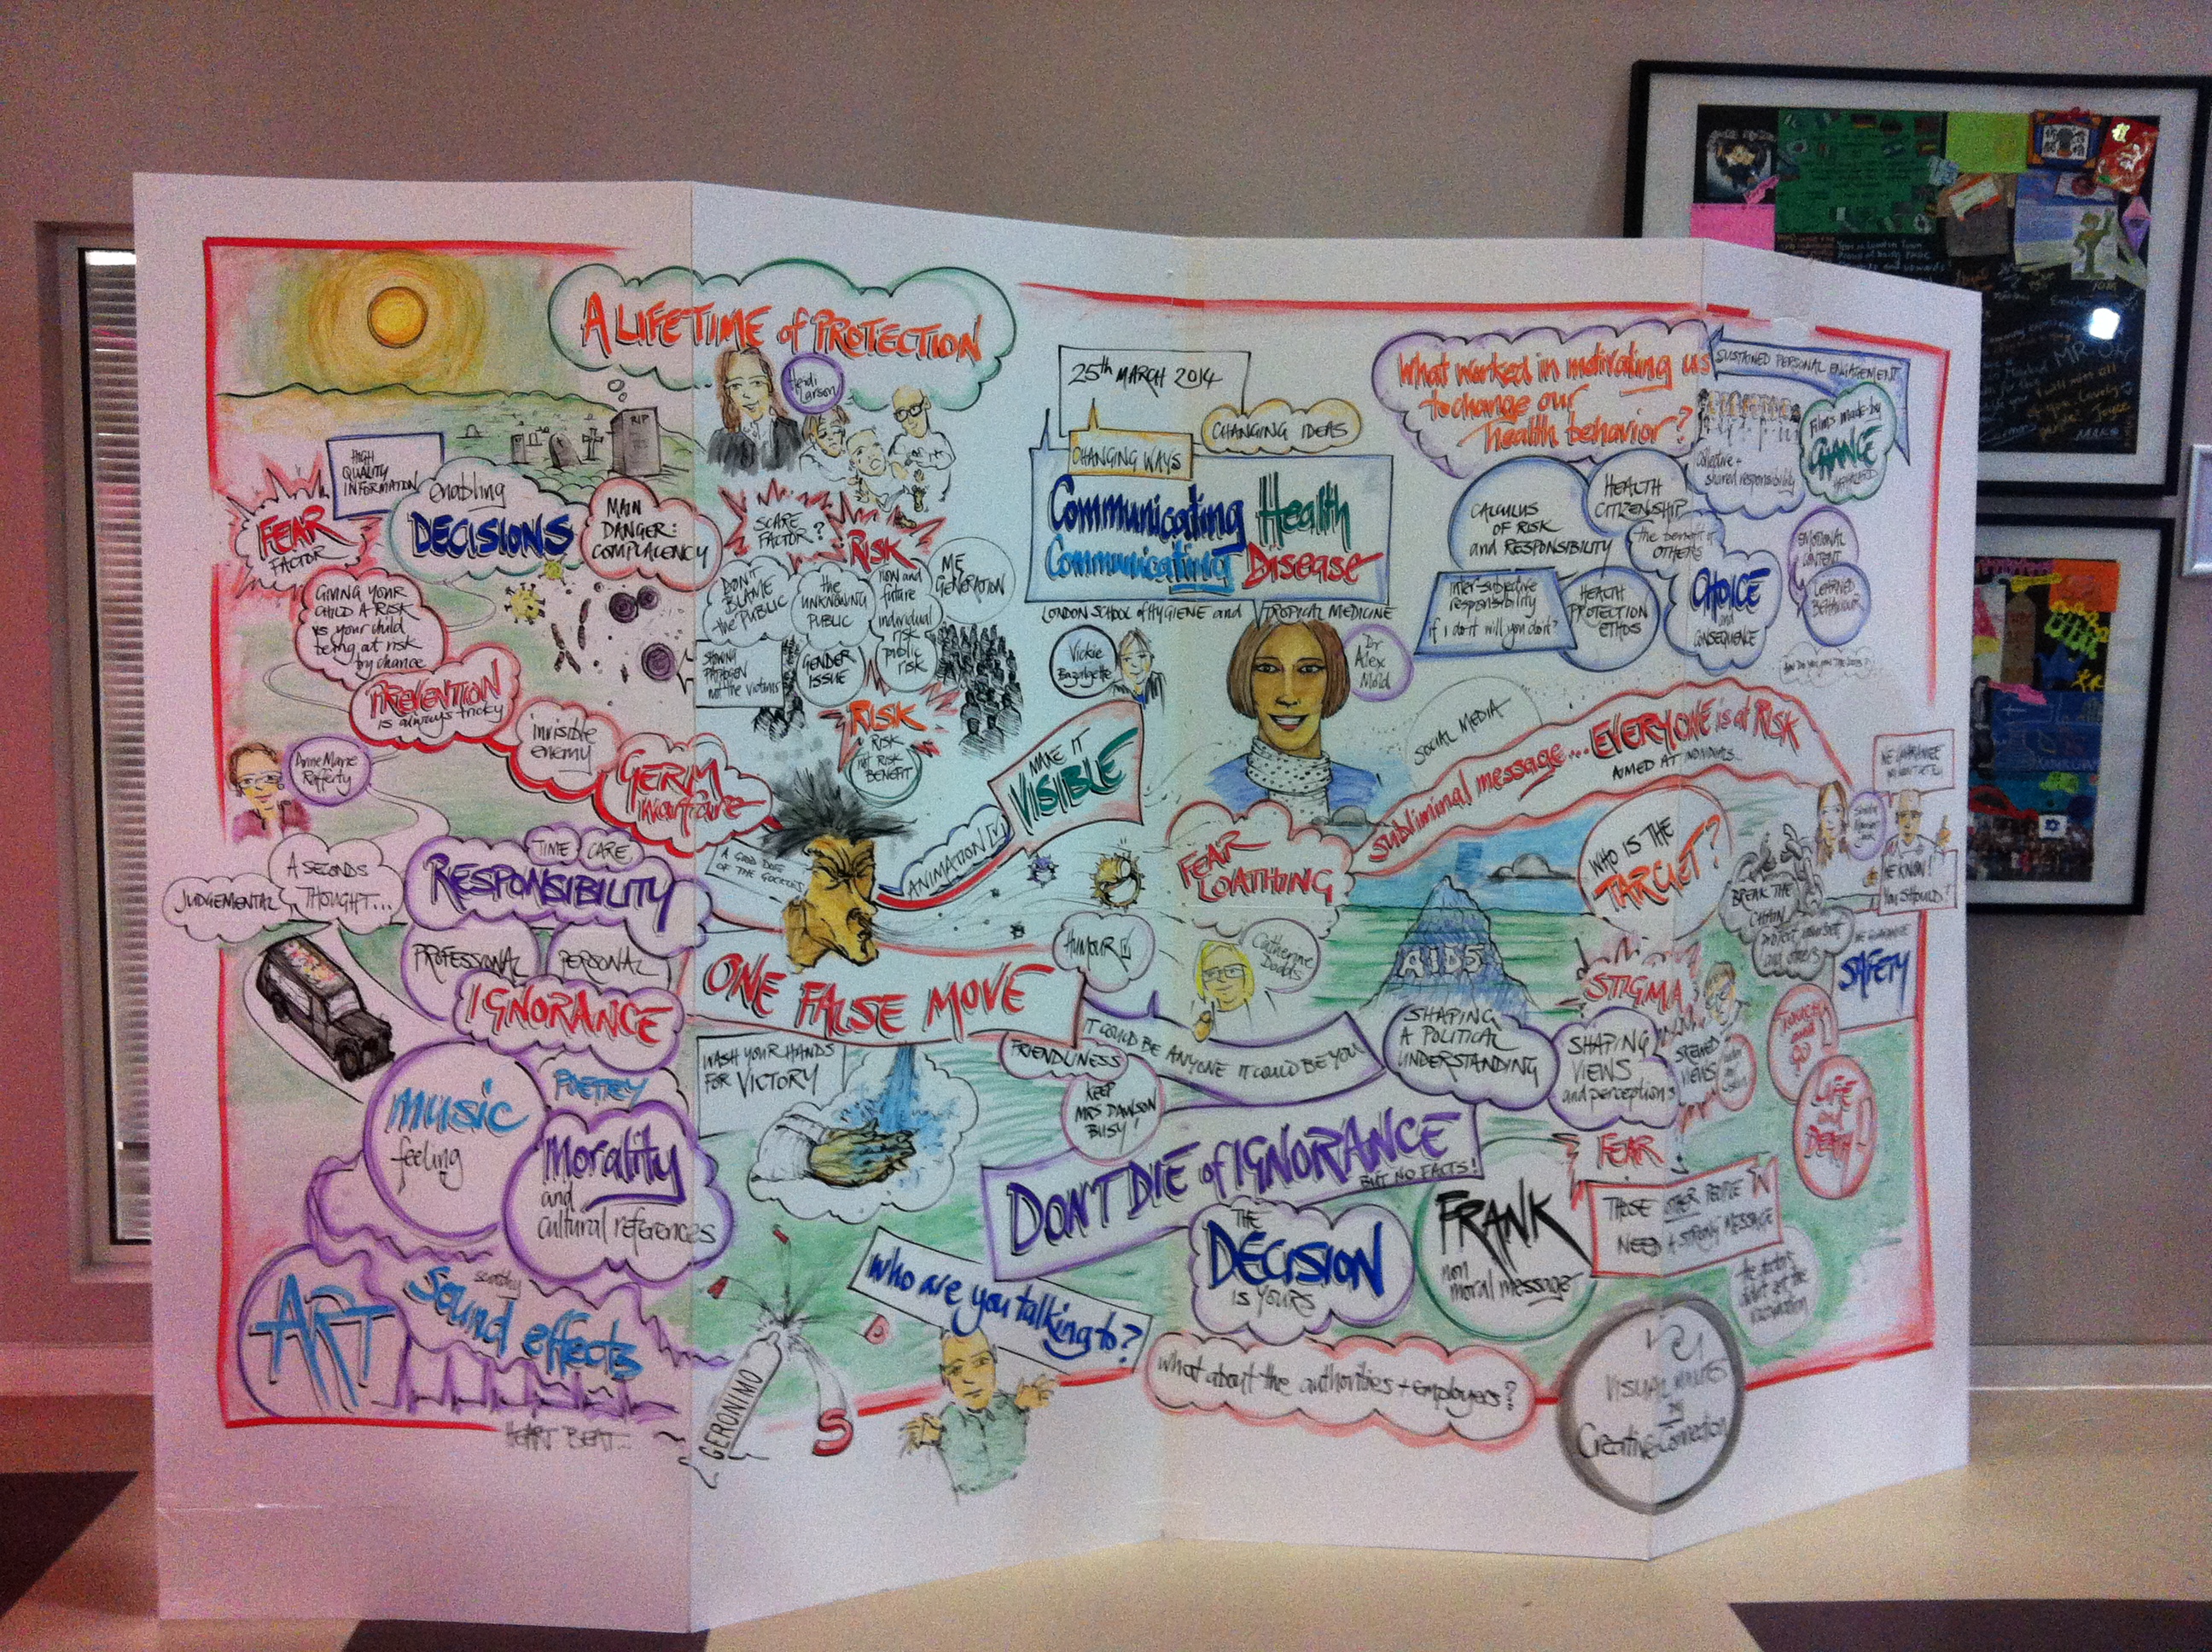 A LIFETIME of PROTECTION
Heidi
Larson
RIP
HIGH
QUALITY
INFORMATION
enabling
DECISIONS
FEAR
FACTOR
MAIN
DANGER:
COMPLACENCY
GIVING YOUR
CHILD A RISK
is your child
being at risk
by chance
PREVENTION
is always tricky
invisible
enemy
GERM
warfare
Anne Marie
Rafferty
SCARE
FACTOR?
RISK
DON'T
BLAME
the PUBLIC
the
UNKNOWING
PUBLIC
now and
future
individual
risk
public
risk
ME
GENERATION
SHOWING
PATHOGEN
not the victims
GENDER
ISSUE
RISK
RISK
not RISK
BENEFIT
25th MARCH 2014
CHANGING IDEAS
CHANGING WAYS
Communicating Health
Communicating Disease
LONDON SCHOOL of HYGIENE and TROPICAL MEDICINE
Vickie
Bazalgette
Dr
Alex
Mold
What worked in motivating us
to change our
health behavior?
SUSTAINED PERSONAL ENGAGEMENT
collective +
shared responsibility
Films made by
CHANCE
CALCULUS
OF RISK
and RESPONSIBILITY
HEALTH
CITIZENSHIP
the benefit of
OTHERS
inter-subjective
responsibility
if I do it will you do it?
HEALTH
PROTECTION
ETHOS
CHOICE
and
CONSEQUENCE
EMOTIONAL
CONTENT
LEARNED
BEHAVIOUR
SOCIAL MEDIA
Subliminal message... EVERYONE is at RISK
AIMED AT INDIVIDUALS...
MAKE IT
VISIBLE
ANIMATION
A GOOD DOSE
OF THE
JUDGEMENTAL
A SECONDS
THOUGHT...
TIME
CARE
RESPONSIBILITY
PROFESSIONAL
PERSONAL
IGNORANCE
ONE FALSE MOVE
HUMOUR
FEAR
LOATHING
Catherine
Dodds
AIDS
WHO IS THE
TARGET?
BREAK THE
CHAIN
protect yourself
and others
WE KNOW!
YOU SHOULD!
SAFETY
STIGMA
SHAPING
A POLITICAL
UNDERSTANDING
SHAPING
VIEWS
and perceptions
SKEWED
VIEWS
TOUCH
and
GO
LIFE
and
DEATH!
WASH YOUR HANDS
FOR VICTORY
FRIENDLINESS
IT COULD BE ANYONE IT COULD BE YOU
KEEP
MRS DAWSON
BUSY!
music
feeling
POETRY
Morality
and
cultural references
DON'T DIE of IGNORANCE
BUT NO FACTS!
FEAR
THOSE OTHER PEOPLE
NEED A STRONG MESSAGE
THE
DECISION
IS YOURS
FRANK
non
moral message
ART
Sound effects
HEART BEAT...
GERONIMO
S
who are you talking to?
what about the authorities + employers?
VISUAL MINUTES
by
Creative Connection